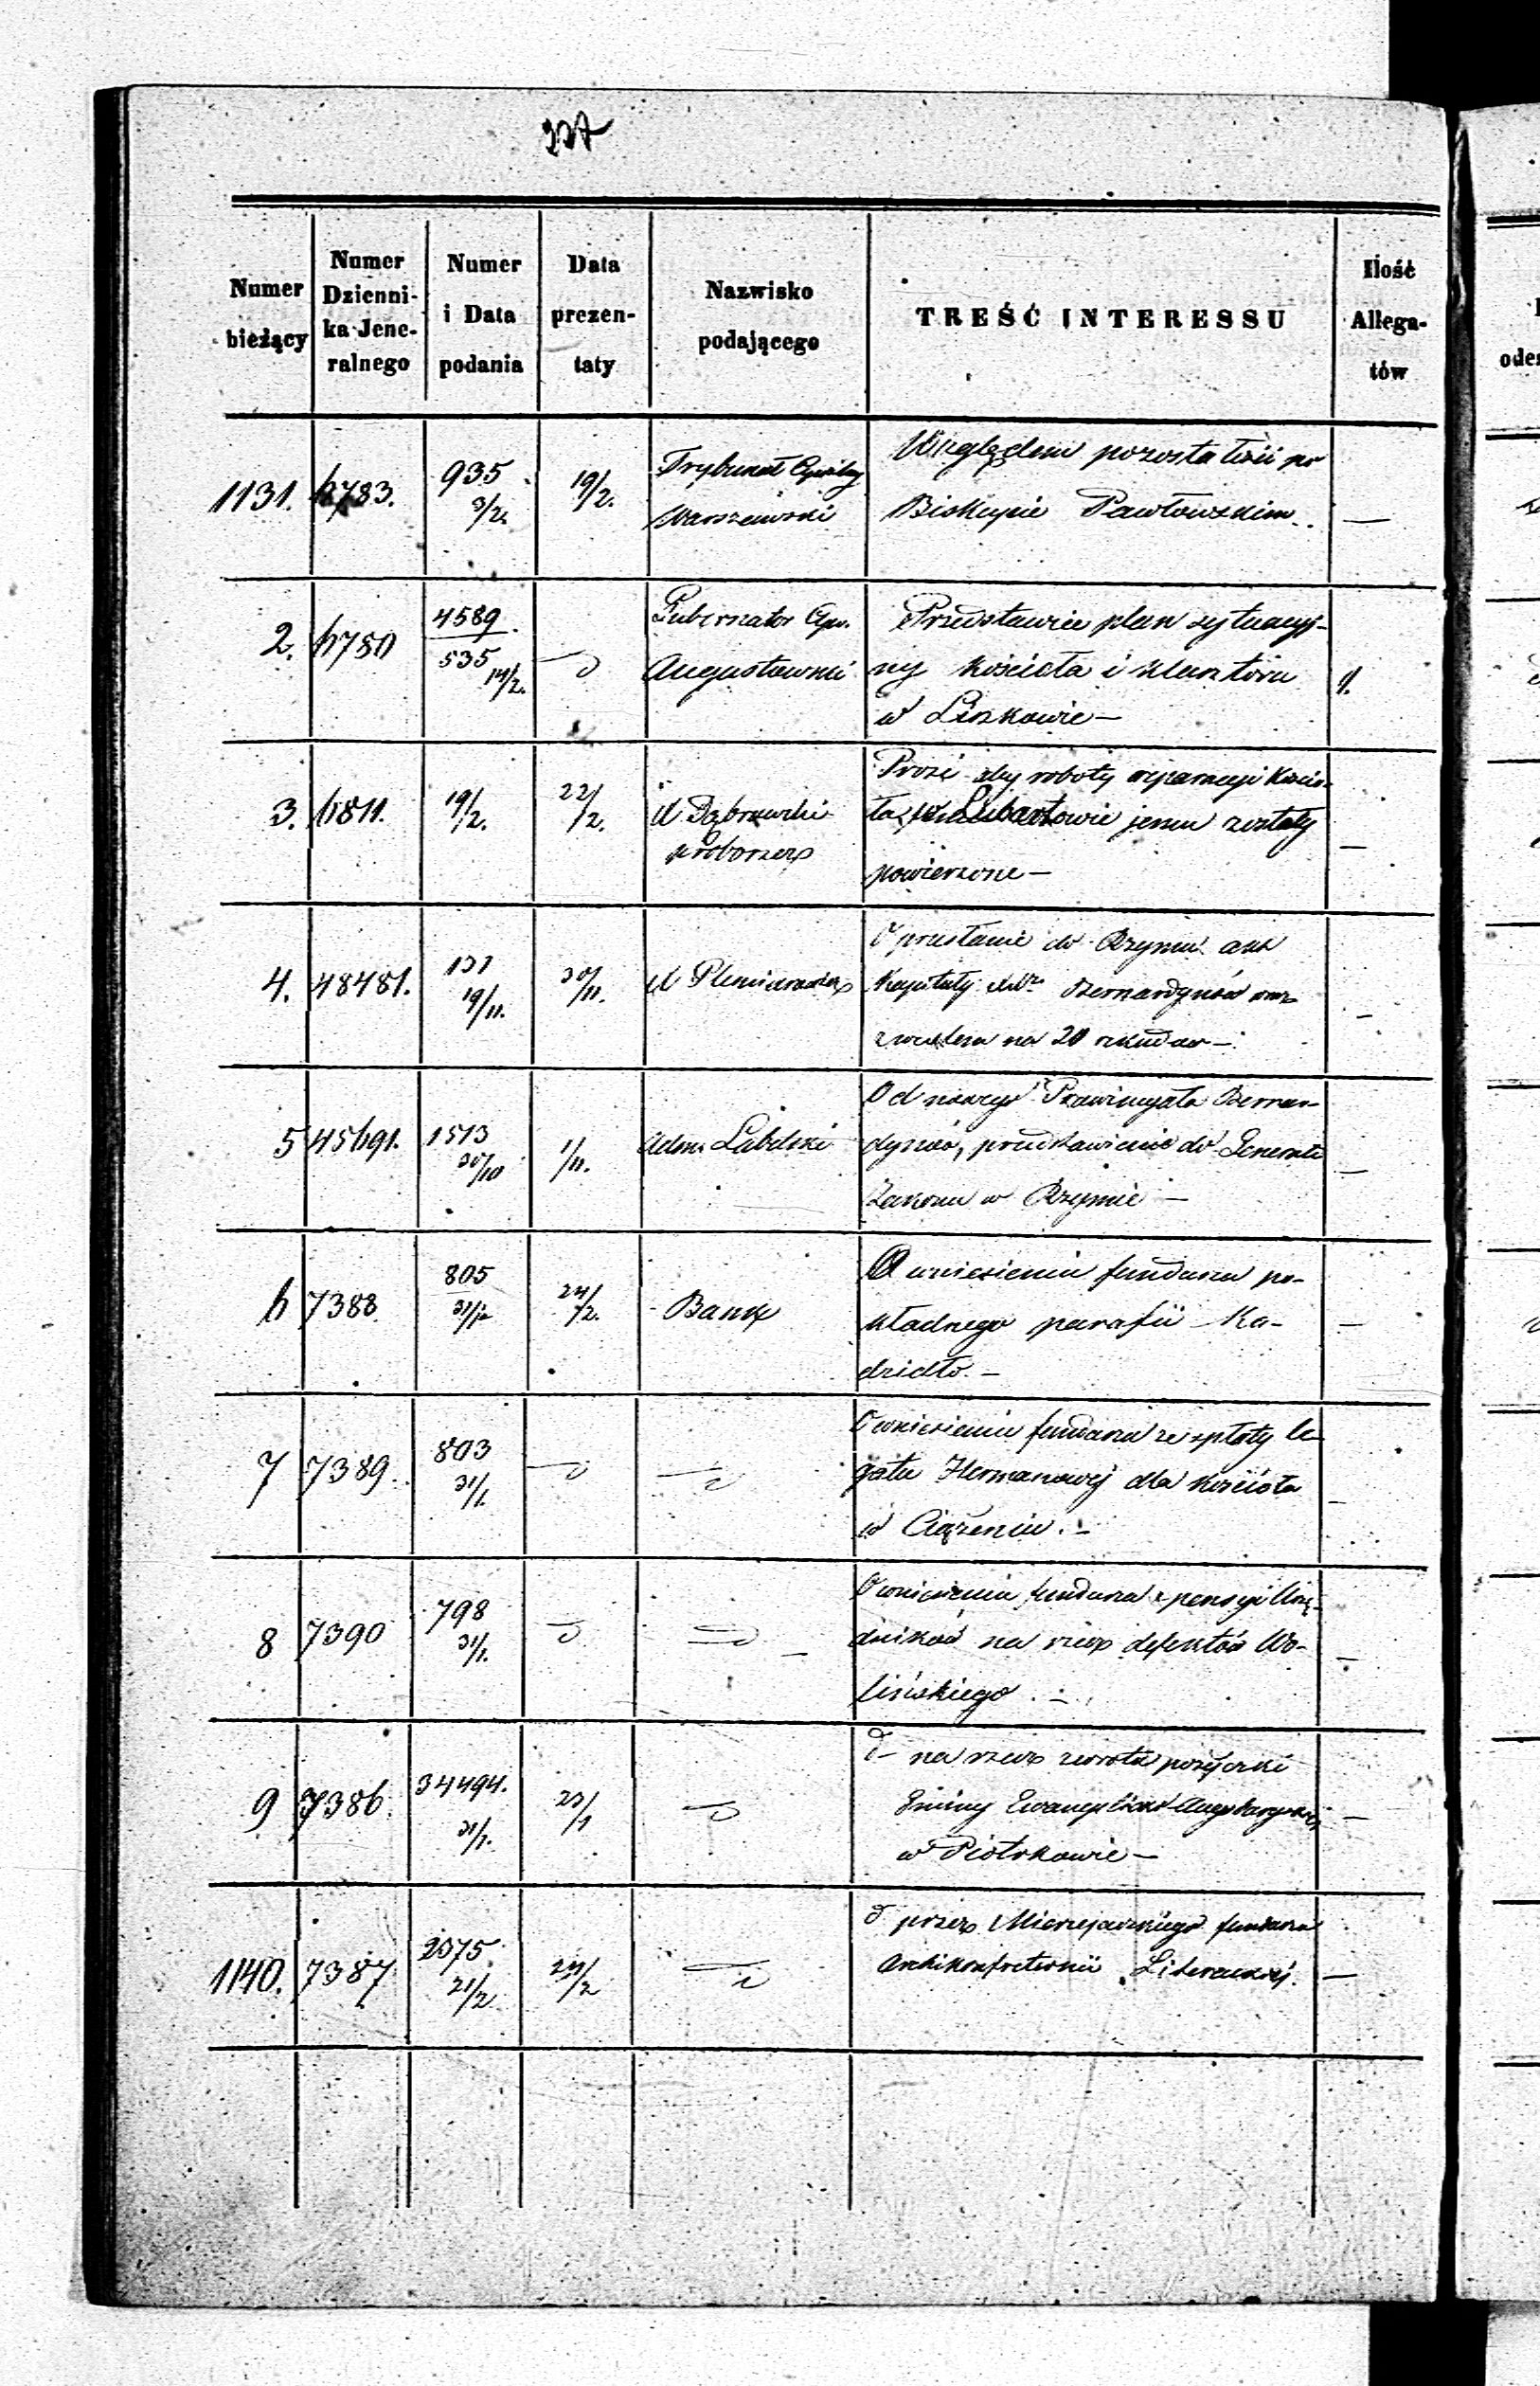 227
Numer bieżący
Numer Dzienni-ka Jene-ralnego
Numer i Data podania
Data prezen-taty
Nazwisko podającego
TREŚĆ INTERESSU
Ilość Allega-tów
1131. 6783. 935 3/2. 19/2. Trybunał Cywilny Względem pozostałości po
Warszawski Biskupie Pawłowskim. —
2. 6780 4589 535 14/2. d Gubernator Cyw. Przedstawie plan sytuacyj-
Augustowski ny kościoła i klasztoru 1.
w Liszkowie —
3. 6811. 19/2. 22/2. X Dąbrowski Prosi aby roboty reparacyi kościo-
proboszcz ła w Lubartowie jemu zostały —
powierzone —
4. 48481. 19/11. 30/11. O przesłanie do Rzymu akt
Kapituły Bernardynów oraz —
na 20
5 45691. 1513 30/10 1/11. Adm. Lubelski Od nowego Prowincyała Bernar-
dynów, przedstawienie do Generała —
Zakonu w Rzymie —
6 7388. 805 31/1. 24/2. Bank O wniesieniu funduszu po-
kładnego parafii Ka- —
dzidło. —
7 7389. 803 31/1. d d O wniesieniu funduszu ze spłaty le-
gatu Hermanowej dla kościoła —
w Ciążeniu. —
8 7390 798 31/1. d d O wniesieniu funduszu z pensyi Urzę-
dników na rzecz defektów Wo- —
lińskiego. —
9 7386. 34494. 31/1. 23/1 d d na rzecz zwrotu pożyczki
Gminy Ewangelicko Augsburgskiej —
w Piotrkowie —
1140. 7387 2375 21/2 24/2 d d przez Mierzejewskiego fundusz
Archikonfraternii Literackiej. —